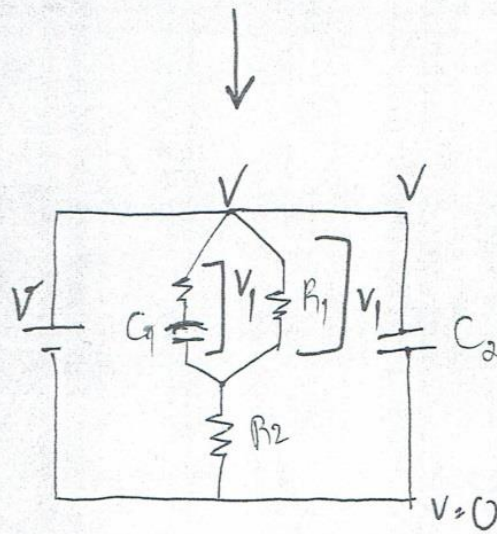 V V
V
C1
V1
R1
V1
C2
R2
V=0